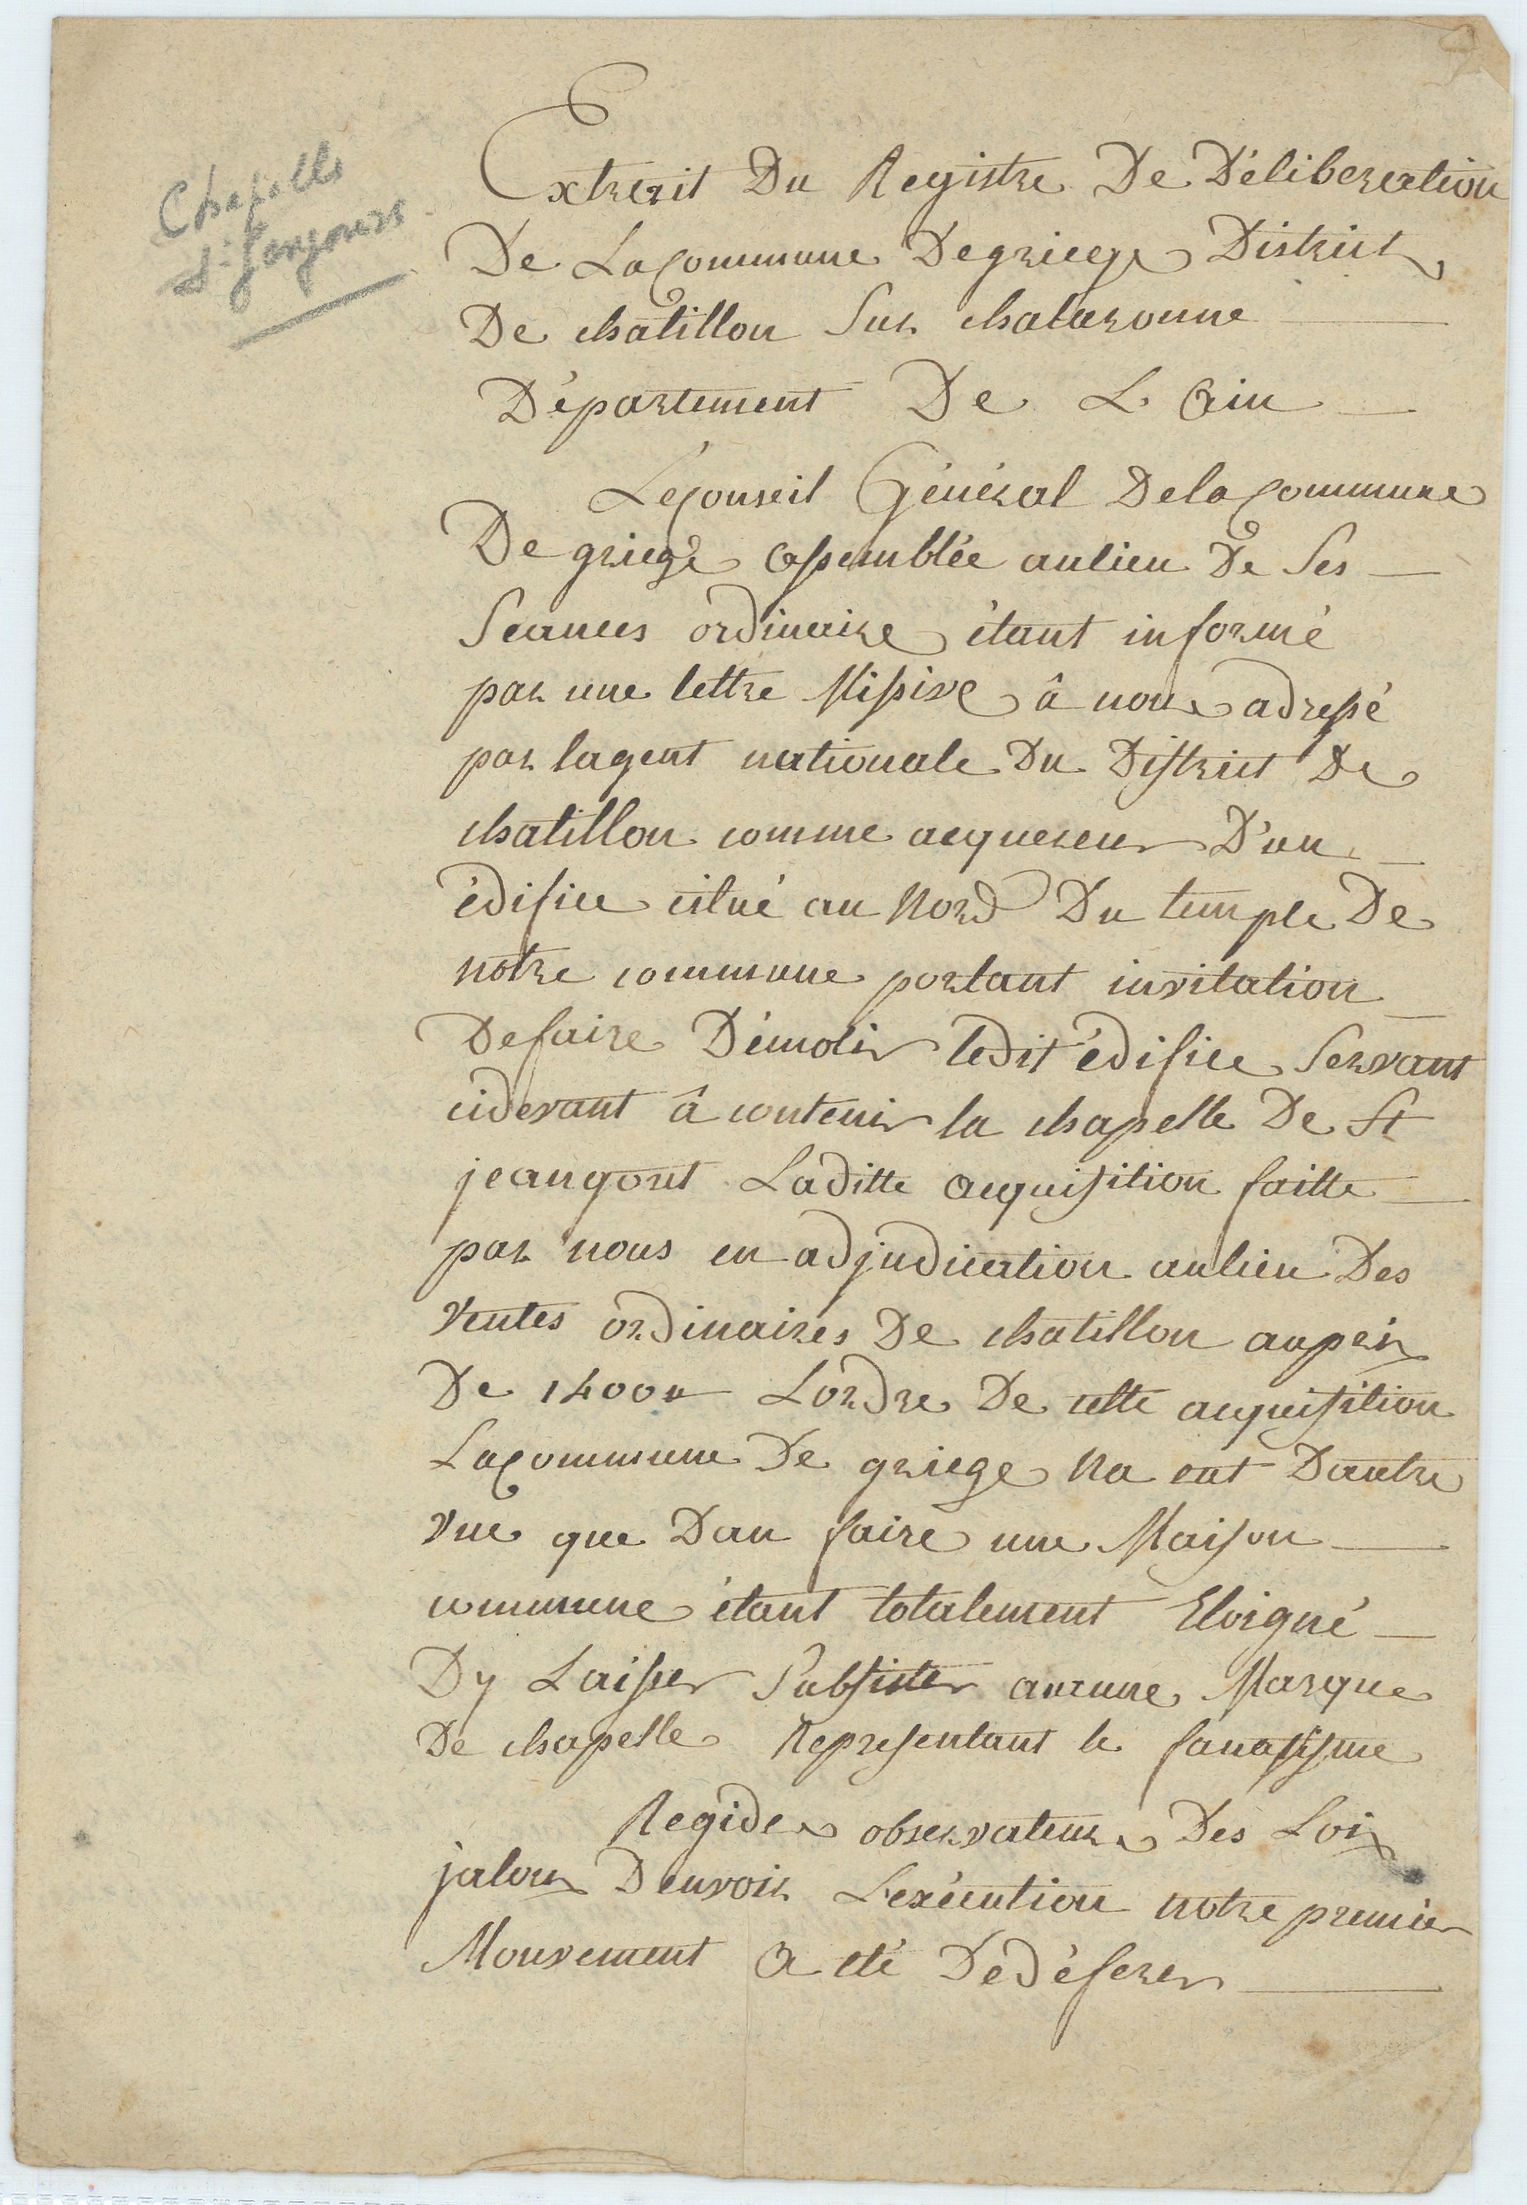 Chapelle
Extrait Du Registre De Déliberation
De La Commune De griege District
De chatillon Sur chalaronne
Département De L Ain
Le Conseil Général De la Commune
De griege assemblée au lieu De Ses
Seances ordinaire étant informé
par une lettre Missive â nous adressé
par lagent nationale Du District De
chatillon comme acquereur D'un
édifice citué au Nord Du temple De
notre commune portant invitation
De faire Démolir ledit édifice Servant
cidevant â contenir la chapelle De St
jeangout Laditte acquisition faitte
par nous en adjudication au lieu Des
Ventes ordinaires De chatillon au prix
De 1400tt Lordre De cette acquisition
La Commune De griege Na eut Dautre
vue que Dan faire une Maison
commune étant totalement Eloigné
Dy Laisser Subsister aucune Marque
De chapelle Representant le fanatisme
Regide observateur Des Loix
jaloux Denvoir L'exécution notre premier
Mouvement a été De déferer